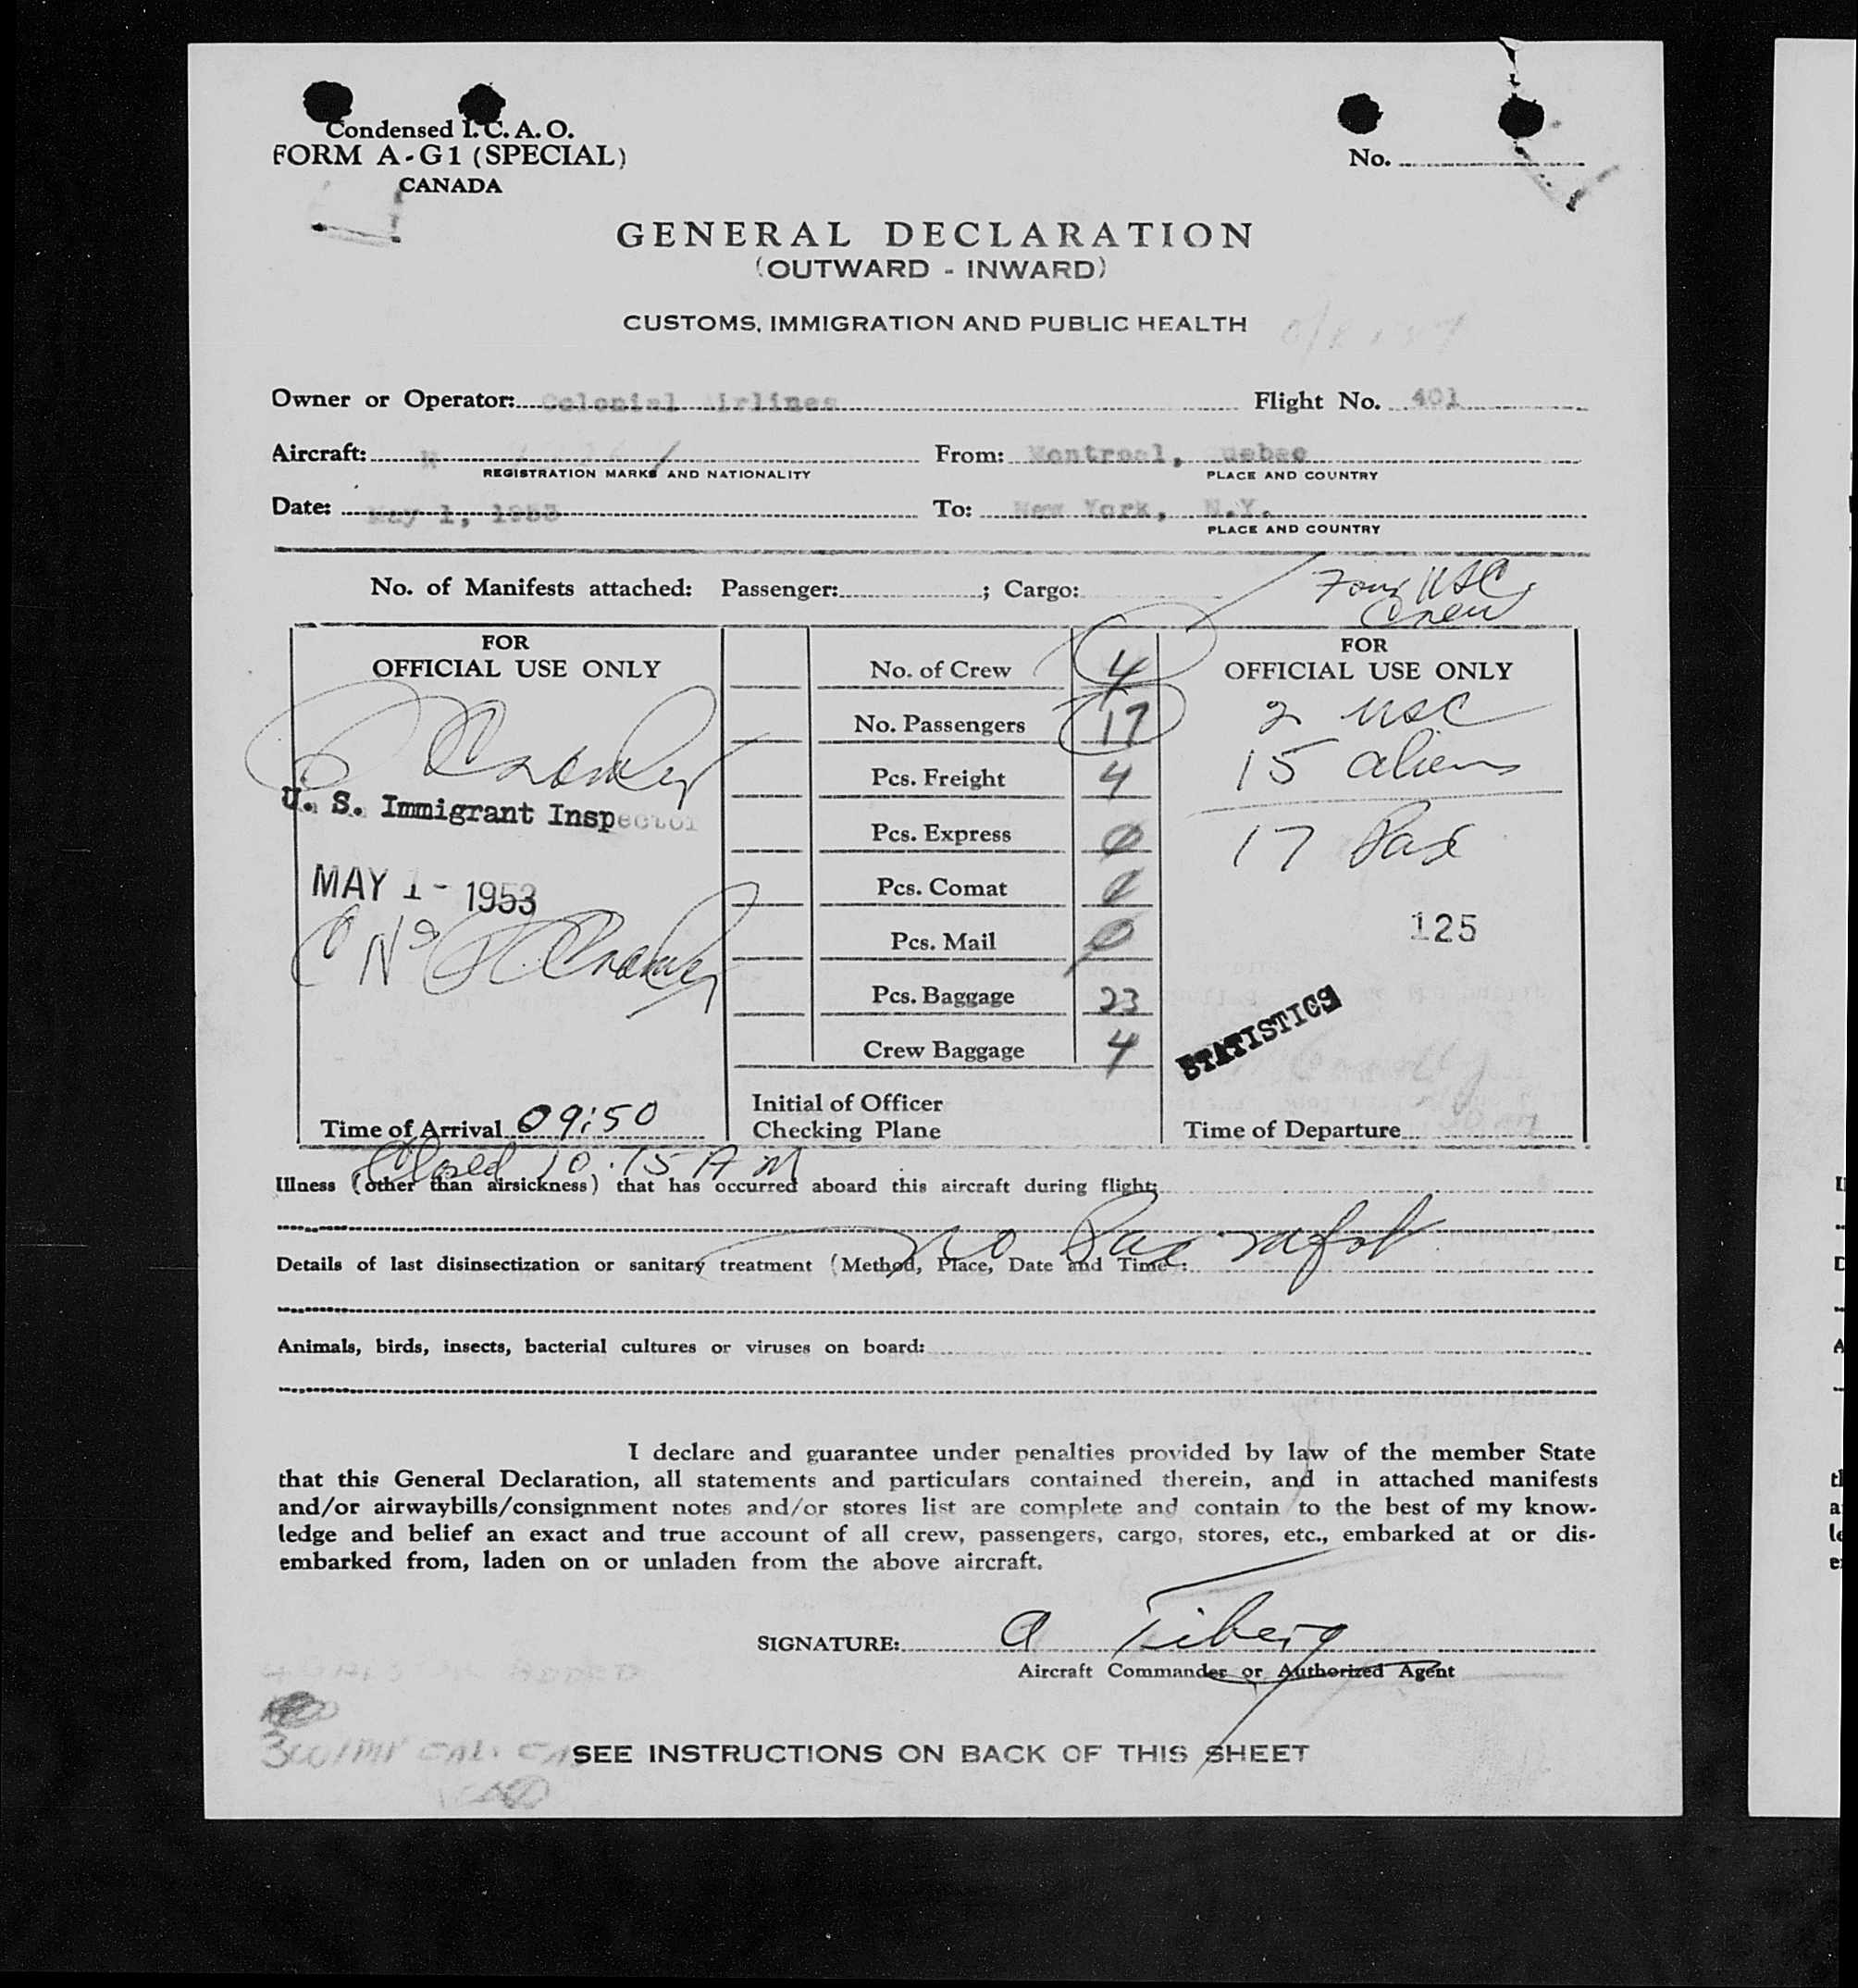 Condensed I.C.A.O.
FORM A-G1 (SPECIAL)
CANADA
No.
GENERAL DECLARATION
(OUTWARD - INWARD)
CUSTOMS, IMMIGRATION AND PUBLIC HEALTH
Owner or Operator: Colonial Airlines Flight No. 401
Aircraft: N From: Montreal, Quebec
REGISTRATION MARKS AND NATIONALITY PLACE AND COUNTRY
Date: May 1, 1953 To: New York, N.Y.
PLACE AND COUNTRY
No. of Manifests attached: Passenger: ; Cargo: Four USC
Crew
FOR
OFFICIAL USE ONLY
U. S. Immigrant Inspector
MAY 1 - 1953
Time of Arrival 09:50
Closed 10:15 AM
No. of Crew 4
No. Passengers 17
Pcs. Freight 4
Pcs. Express 0
Pcs. Comat 0
Pcs. Mail 0
Pcs. Baggage 23
Crew Baggage 4
Initial of Officer
Checking Plane
FOR
OFFICIAL USE ONLY
2 USC
15 aliens
17 Pax
125
STATISTICS
Time of Departure
Illness (other than airsickness) that has occurred aboard this aircraft during flight:
No Pax
Details of last disinsectization or sanitary treatment (Method, Place, Date and Time :
Animals, birds, insects, bacterial cultures or viruses on board:
I declare and guarantee under penalties provided by law of the member State
that this General Declaration, all statements and particulars contained therein, and in attached manifests
and/or airwaybills/consignment notes and/or stores list are complete and contain to the best of my know-
ledge and belief an exact and true account of all crew, passengers, cargo, stores, etc., embarked at or dis-
embarked from, laden on or unladen from the above aircraft.
SIGNATURE: A Tiberg
Aircraft Commander or Authorized Agent
SEE INSTRUCTIONS ON BACK OF THIS SHEET